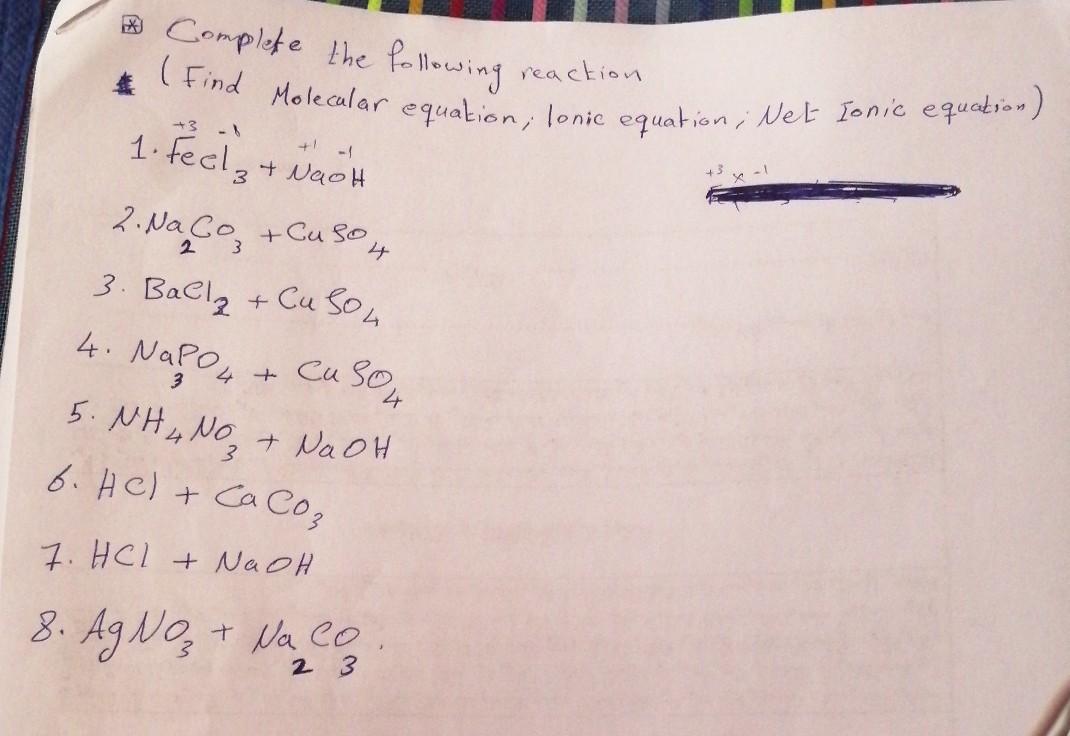 Complete the following reaction
(Find Molecular equation; Ionic equation; Net Ionic equation)
+3 -1 +1 -1
1. FeCl3 + NaOH
+3 x -1
2. Na2CO3 + CuSO4
3. BaCl2 + CuSO4
4. Na3PO4 + CuSO4
5. NH4NO3 + NaOH
6. HCl + CaCO3
7. HCl + NaOH
8. AgNO3 + Na2CO3.